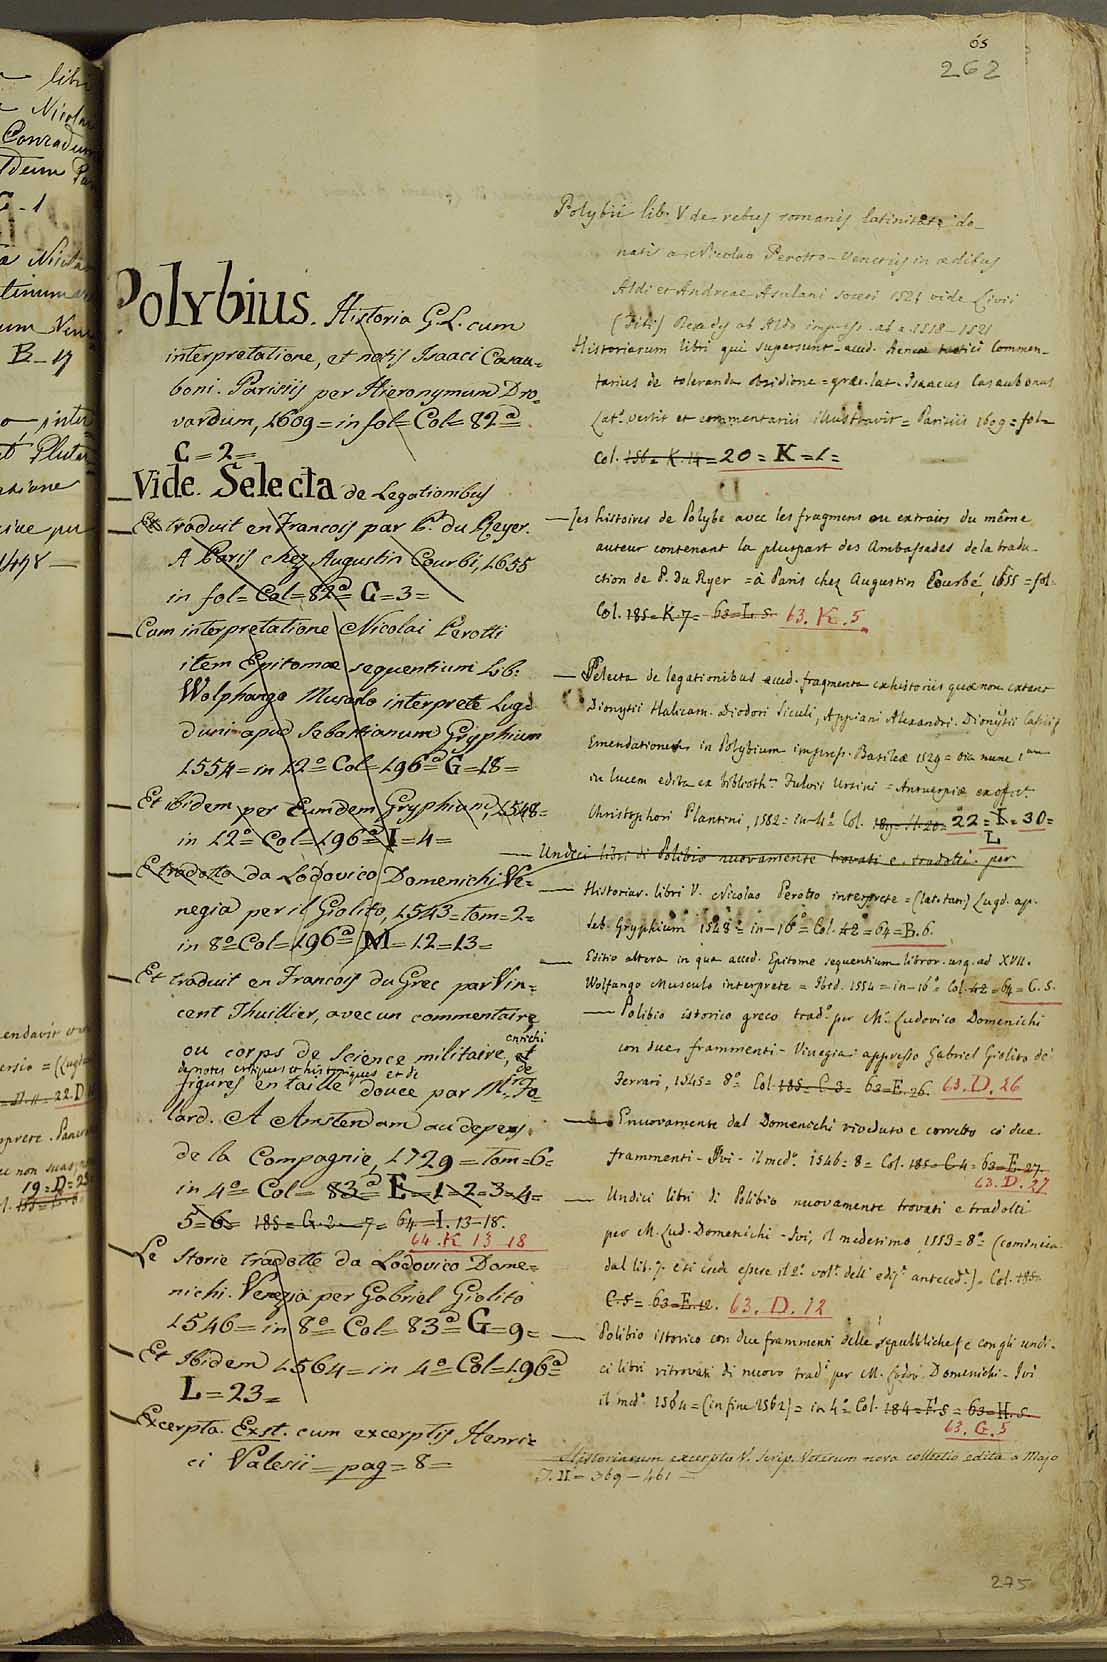 libri
Nicolai
Conradum
Idem
C-1
B-17
1478
19=D=23
ós
262
Polybius. Historia G.L. cum
interpretatione, et notis Isaaci Casau=
boni. Parisiis per Hieronymum Dro=
vardum, 1609=in fol=Col=82ª=
C=2=
Vide. Selecta de Legationibus
Et traduit en Francois par P. du Reyer.
A Paris chez Augustin Courbi, 1655
in fol=Col=82ª=G=3=
Cum interpretatione Nicolai Perotti
item Epitomæ sequentium Lib:
Wolphango Musculo interprete Lugd
duni apud Sebastianum Gryphium
1554=in 12º Col=196ª G=18=
Et ibidem per Eumdem Gryphium, 1548=
in 12º Col=196ª I=4=
E tradotto da Lodovico Domenichi Ve=
negia per il Giolito, 1543=tom=2=
in 8º Col=196ª M=12=13=
Et traduit en Francois du Grec par Vin=
cent Thuillier, avec un commentaire
ou corps de Science militaire, enrichi
de notes critiques et historiques et de
figures en taille douce par Mr. de Fo=
lard. A Amsterdam au depens
de la Compagnie, 1729=tom=6=
in 4º Col=83ª E=1=2=3=4=
5=6= 185=G.2-7= 64=I.13-18.
64.K 13 18
Le Storie tradotte da Lodovico Dome=
nichi. Venezia per Gabriel Giolito
1546=in 8º Col=83ª=G=9=
Et Ibidem 1564=in 4º Col=196ª=
L=23=
Excerpta. Exst. cum excerptis Henri=
ci Valesii=pag=8=
Polybii lib. V de rebus romanis latinitate do-
nati a Nicolao Perotto-Venetiis in ædibus
Aldi et Andreae Asulani soceri 1521 vide Livii
(Titi) Decades ab Aldo impress. ab a. 1518-1521
Historiarum libri qui supersunt-acced. Aeneæ tactici Commen-
tarius de toleranda obsidione=græc.lat. Isaacus Casaubonus
Latº vertit et commentariis illustravit=Parisiis 1609=fol=
Col. 186=K.14=20=K=1=
Les histoires de Polybe avec les fragmens ou extraits du même
auteur contenant la pluspart des Ambassades de la tradu-
ction de P. du Ryer=à Paris chez Augustin Courbé, 1655=fol.
Col. 185=K.7= 63=L.5. 63.K.5.
Selecta de legationibus acced. fragmenta ex historiis quæ non extant
Dionysii Halicarn. Diodori Siculi, Appiani Alexandri. Dionysii Cassii
Emendationes in Polybium impress. Basileæ 1529=
in lucem edita ex biblioth. Fulvii Ursini=Antuerpiæ ex offic.
Christophori Plantini, 1582=in-4º Col. 22=I=30=
L
Undici libri di Polibio nuovamente trovati e tradotti per
Historiar. libri V. Nicolao Perotto interprete=(lat.tan.) Lugd. ap.
Seb. Gryphium 1548=in-16º=Col. 42=64=B.6.
Editio altera in qua acced. Epitome sequentium libror. usq. ad XVII.
Wolfango Musculo interprete=Ibid. 1554=in-16º Col. 42=64=C.5.
Polibio istorico greco tradº per Mº Ludovico Domenichi
con due frammenti-Vinegia appresso Gabriel Giolito de'
Ferrari, 1545=8º Col. 185=C.3=63=E.26. 63.D.26
E nuovamente dal Domenichi riveduto e corretto có due
frammenti-Ivi-il medº. 1546=8=Col. 185=C.4=63=E.27.
63.D.27
Undici libri di Polibio nuovamente trovati e tradotti
per M. Lud. Domenichi-Ivi, il medesimo 1553=8º=(comincia
dal lib.7. e si crede essere il 2º volº. dell' edizº antecedº.)=Col. 185=
C.5=63=E.12. 63.D.12
Polibio istorico con due frammenti delle republiche e con gli undi-
ci libri ritrovati di nuovo tradº per M. Lodov. Domenichi-Ivi
il medº. 1564=(in fine 1562)=in 4º Col. 184=F.5=63=H.5.
63.G.5
Historiarum excerpta V. Scrip. Veterum nova collectio edita a Majo
T.II=369-461
275